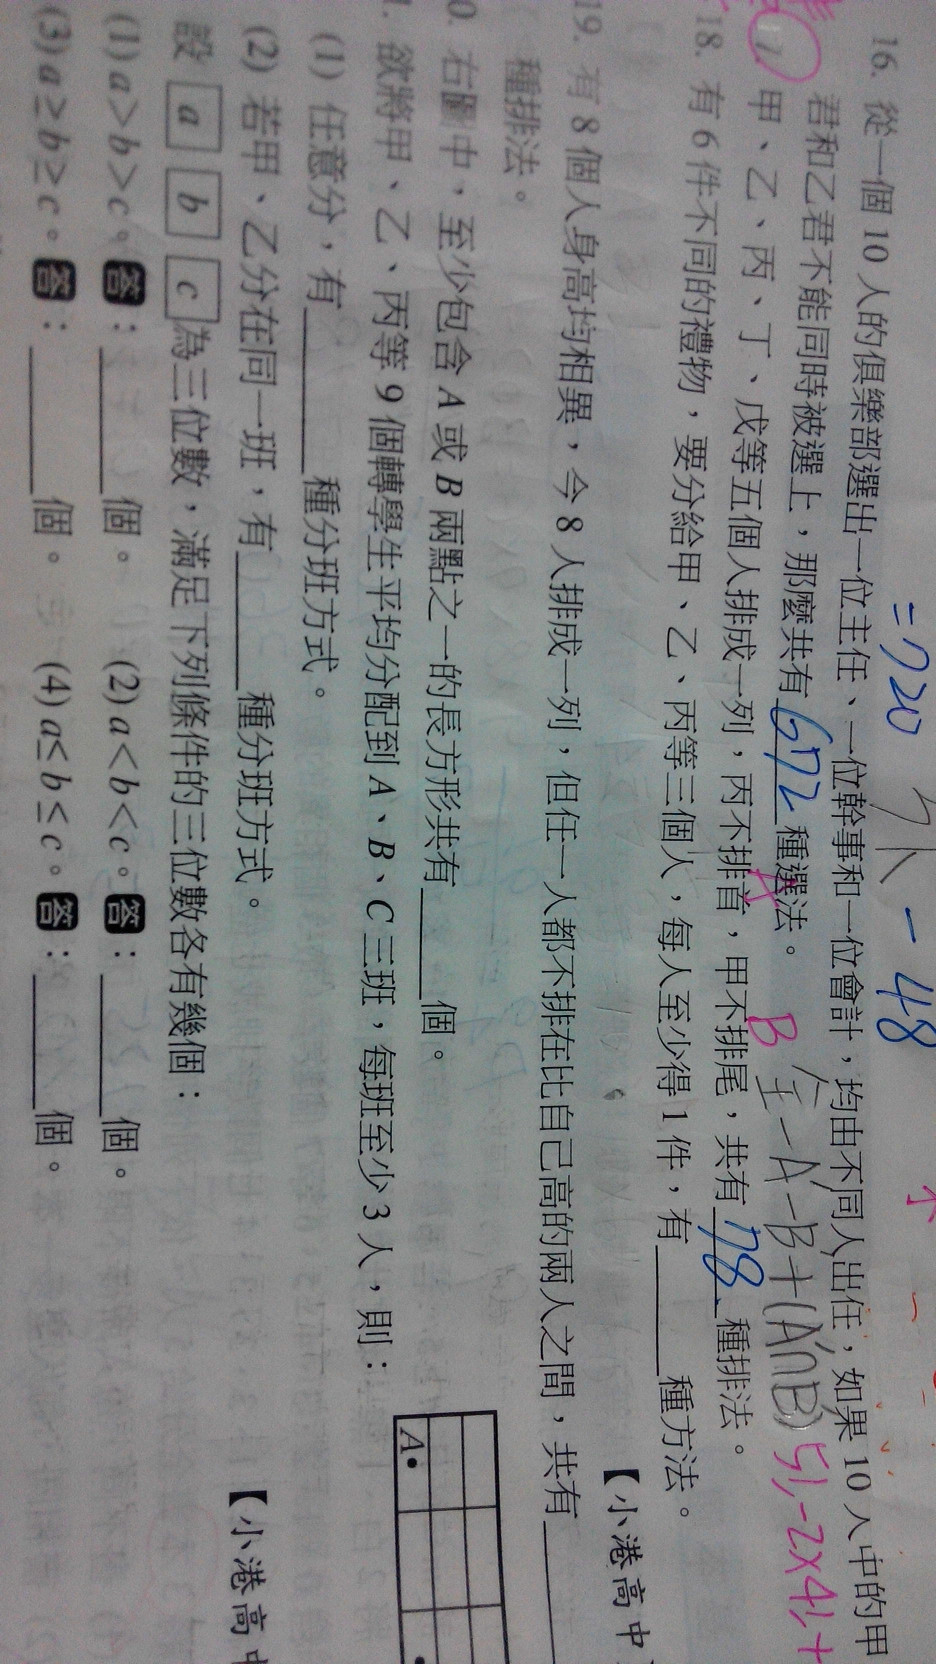 =720 - 48
16. 從一個 10 人的俱樂部選出一位主任、一位幹事和一位會計，均由不同人出任，如果 10 人中的甲
君和乙君不能同時被選上，那麼共有 672 種選法。
B 全-A-B+(A∩B) 5!-2×4!+
17. 甲、乙、丙、丁、戊等五個人排成一列，丙不排首，甲不排尾，共有 78 種排法。
A
18. 有 6 件不同的禮物，要分給甲、乙、丙等三個人，每人至少得 1 件，有______種方法。
【小港高中】
19. 有 8 個人身高均相異，今 8 人排成一列，但任一人都不排在比自己高的兩人之間，共有______
種排法。
0. 右圖中，至少包含 A 或 B 兩點之一的長方形共有______個。
A
1. 欲將甲、乙、丙等 9 個轉學生平均分配到 A、B、C 三班，每班至少 3 人，則：
(1) 任意分，有______種分班方式。
(2) 若甲、乙分在同一班，有______種分班方式。
【小港高中
設 a b c 為三位數，滿足下列條件的三位數各有幾個：
(1) a > b > c。答：______個。 (2) a < b < c。答：______個。
(3) a ≥ b ≥ c。答：______個。 (4) a ≤ b ≤ c。答：______個。